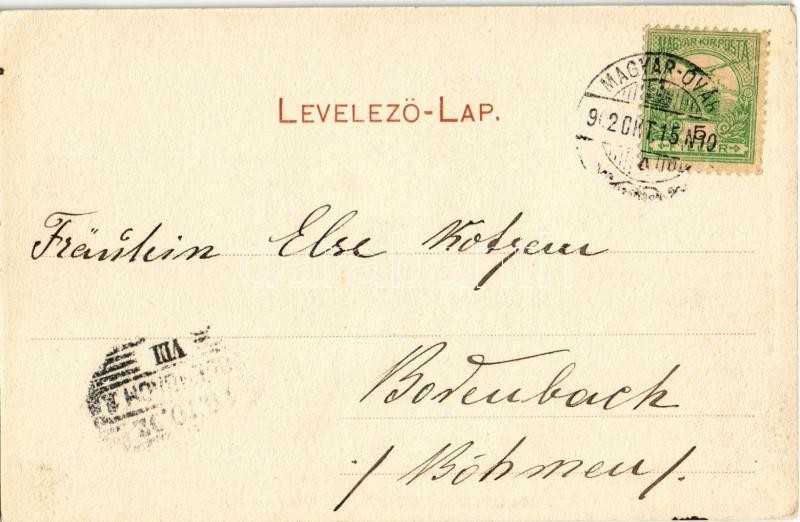 MAGYAR KIR. POSTA
MAGYAR-ÓVÁR
902 OKT 15 N10
5
FILLÉR
LEVELEZŐ-LAP.
Fräulein Else Kotzem
VIII
Bodenbach
/Böhmen/.